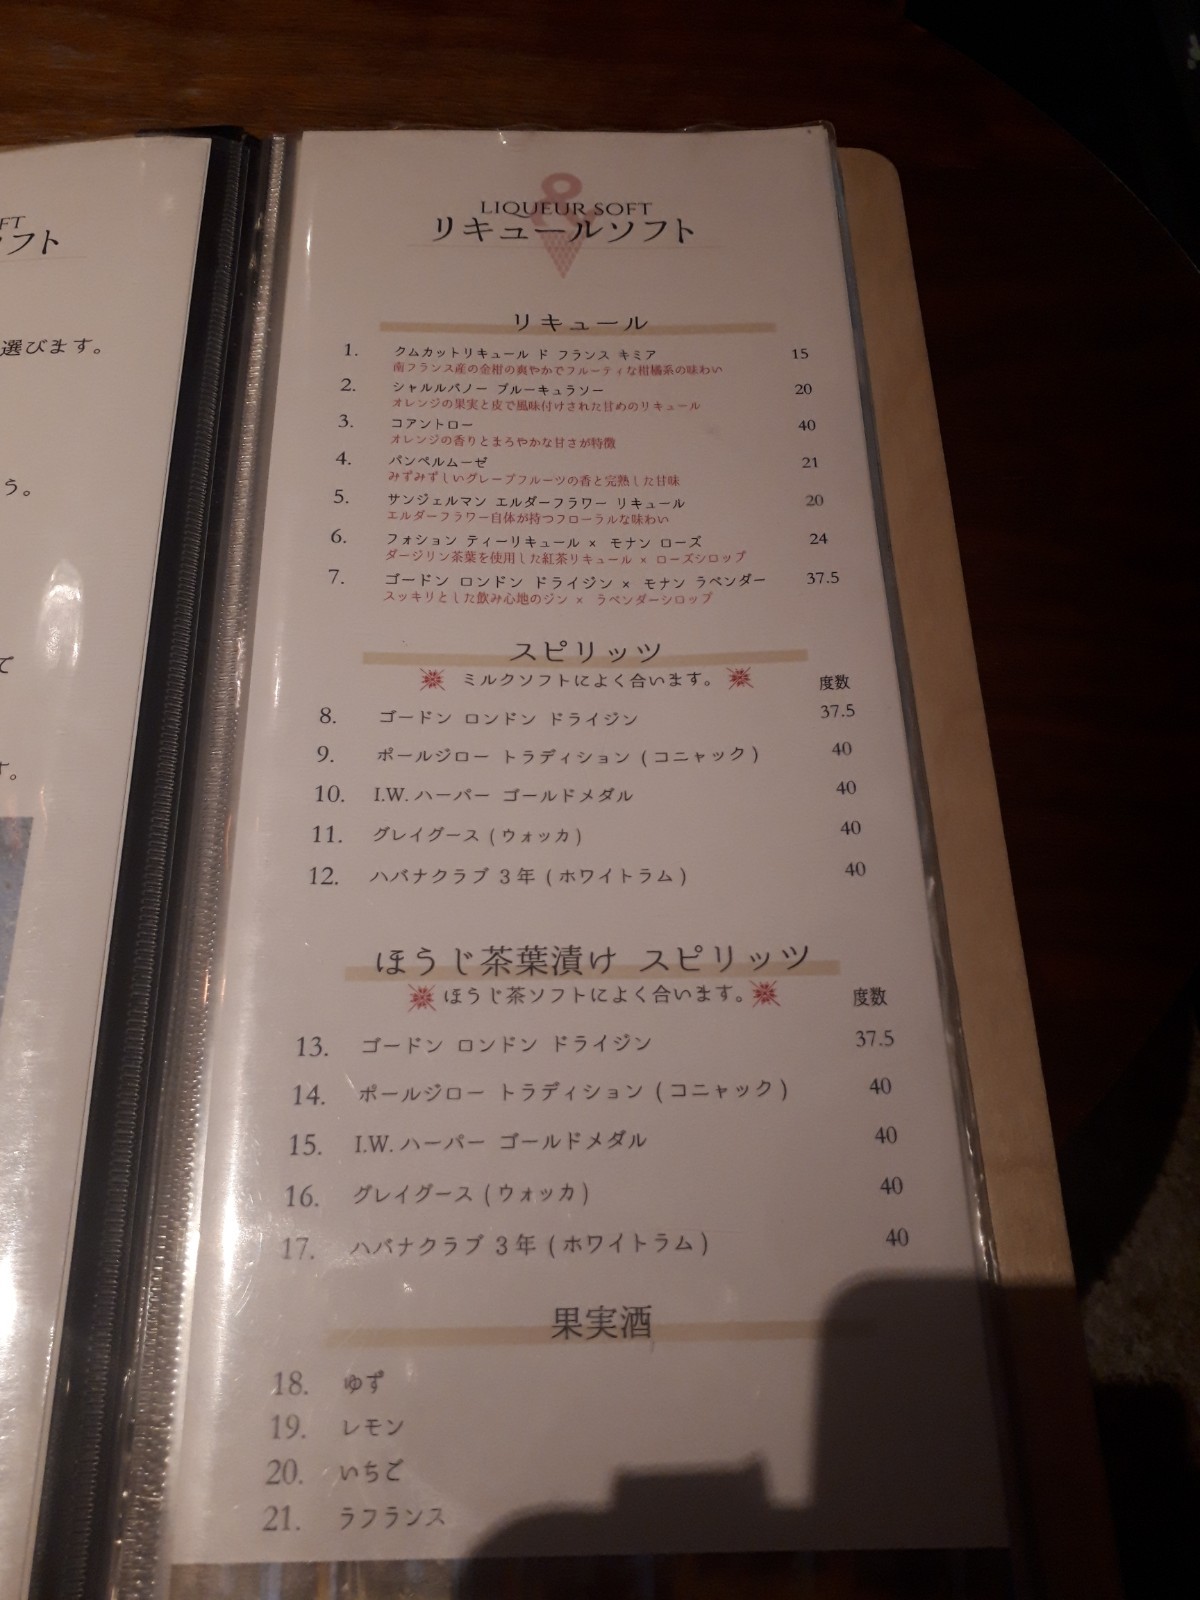 FT
フト
選びます。
う。
て
す。
LIQUEUR SOFT
リキュールソフト
リキュール
1. クムカットリキュール ド フランス キミア 15
南フランス産の金柑の爽やかでフルーティな柑橘系の味わい
2. シャルルバノー ブルーキュラソー 20
オレンジの果実と皮で風味付けされた甘めのリキュール
3. コアントロー 40
オレンジの香りとまろやかな甘さが特徴
4. パンペルムーゼ 21
みずみずしいグレープフルーツの香と完熟した甘味
5. サンジェルマン エルダーフラワー リキュール 20
エルダーフラワー自体が持つフローラルな味わい
6. フォション ティーリキュール × モナン ローズ 24
ダージリン茶葉を使用した紅茶リキュール × ローズシロップ
7. ゴードン ロンドン ドライジン × モナン ラベンダー 37.5
スッキリとした飲み心地のジン × ラベンダーシロップ
スピリッツ
ミルクソフトによく合います。 度数
8. ゴードン ロンドン ドライジン 37.5
9. ポールジロー トラディション (コニャック) 40
10. I.W. ハーパー ゴールドメダル 40
11. グレイグース (ウォッカ) 40
12. ハバナクラブ 3年 (ホワイトラム) 40
ほうじ茶葉漬け スピリッツ
ほうじ茶ソフトによく合います。 度数
13. ゴードン ロンドン ドライジン 37.5
14. ポールジロー トラディション (コニャック) 40
15. I.W. ハーパー ゴールドメダル 40
16. グレイグース (ウォッカ) 40
17. ハバナクラブ 3年 (ホワイトラム) 40
果実酒
18. ゆず
19. レモン
20. いちご
21. ラフランス